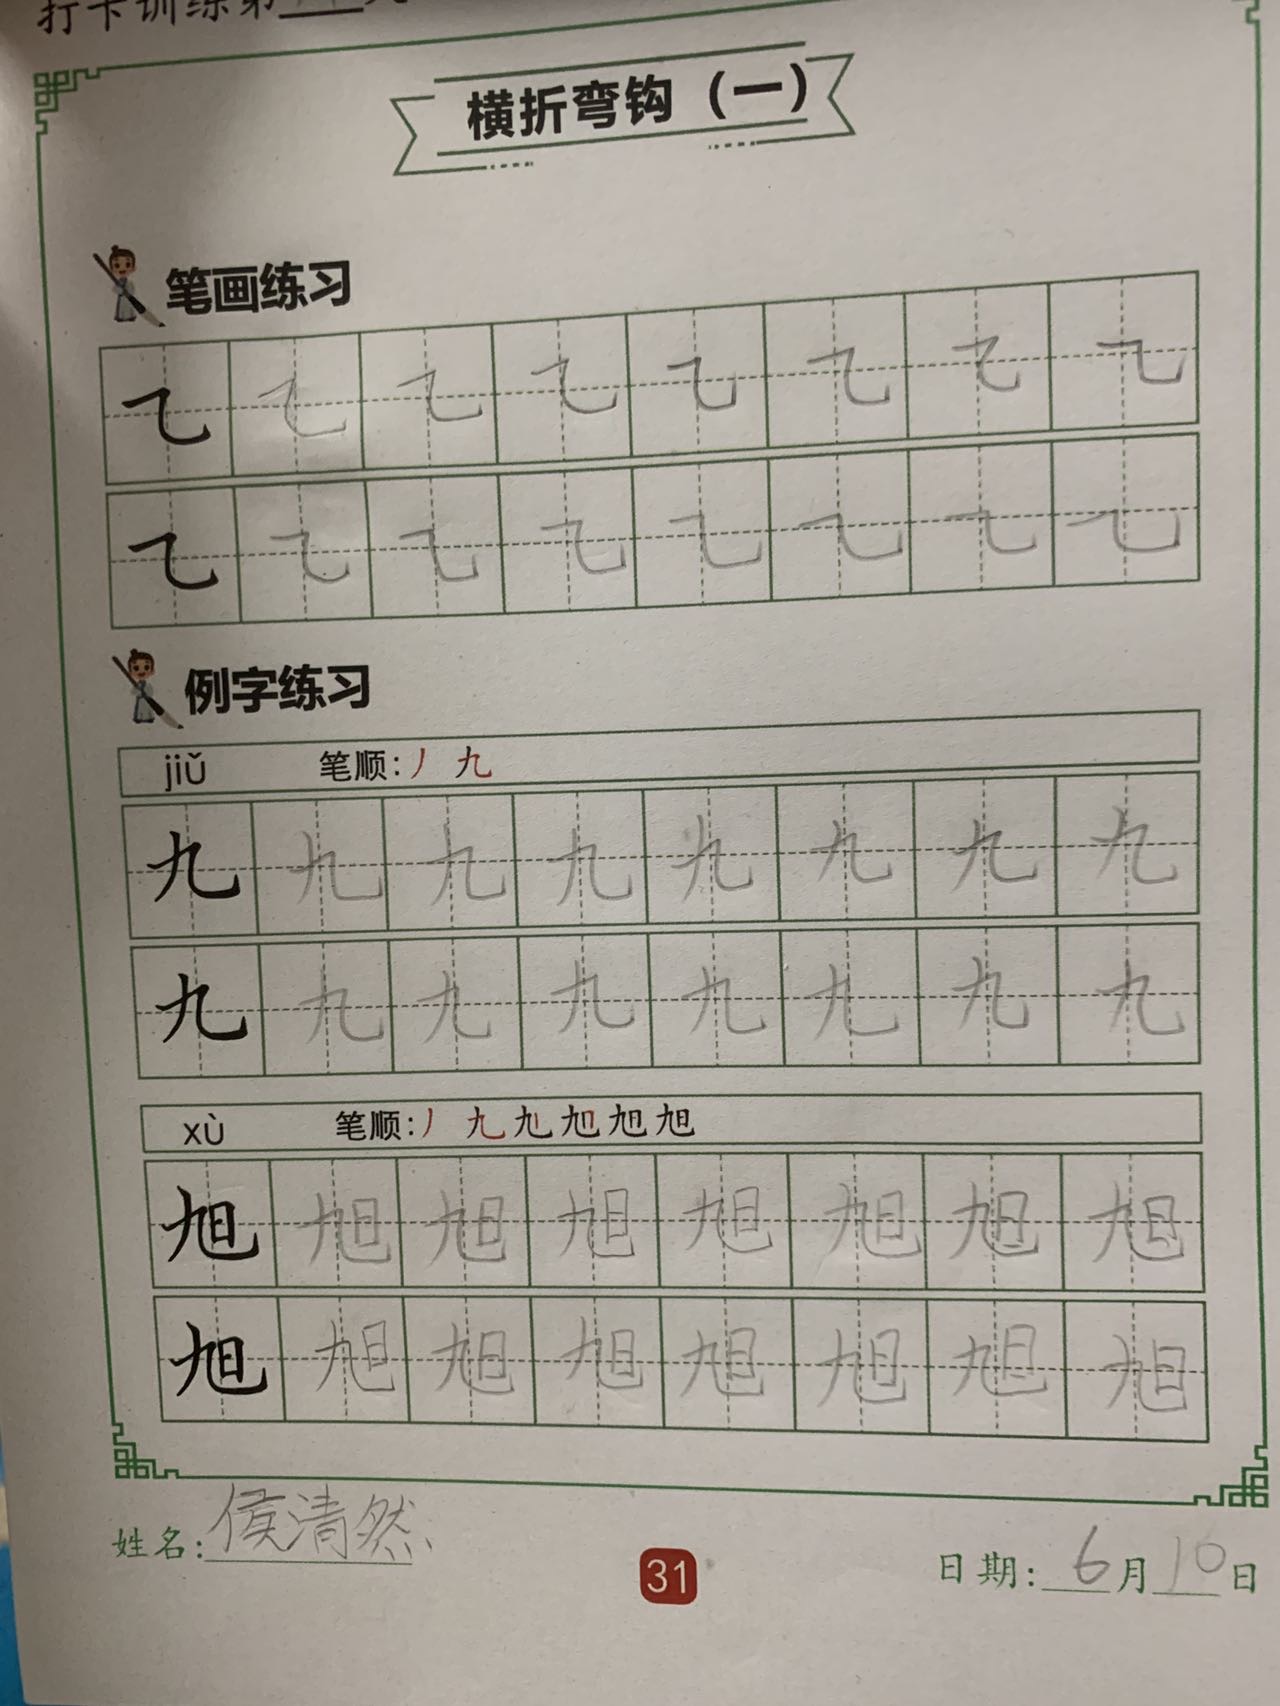 打卡训练第
横折弯钩（一）
笔画练习
㇈ ㇈ ㇈ ㇈ ㇈ ㇈ ㇈ ㇈
㇈ ㇈ ㇈ ㇈ ㇈ ㇈ ㇈ ㇈
例字练习
jiǔ 笔顺：丿 九
九 九 九 九 九 九 九 九
九 九 九 九 九 九 九 九
xù 笔顺：丿 九 旭 旭 旭 旭
旭 旭 旭 旭 旭 旭 旭 旭
旭 旭 旭 旭 旭 旭 旭 旭
姓名：侯清然
31
日期：6月10日